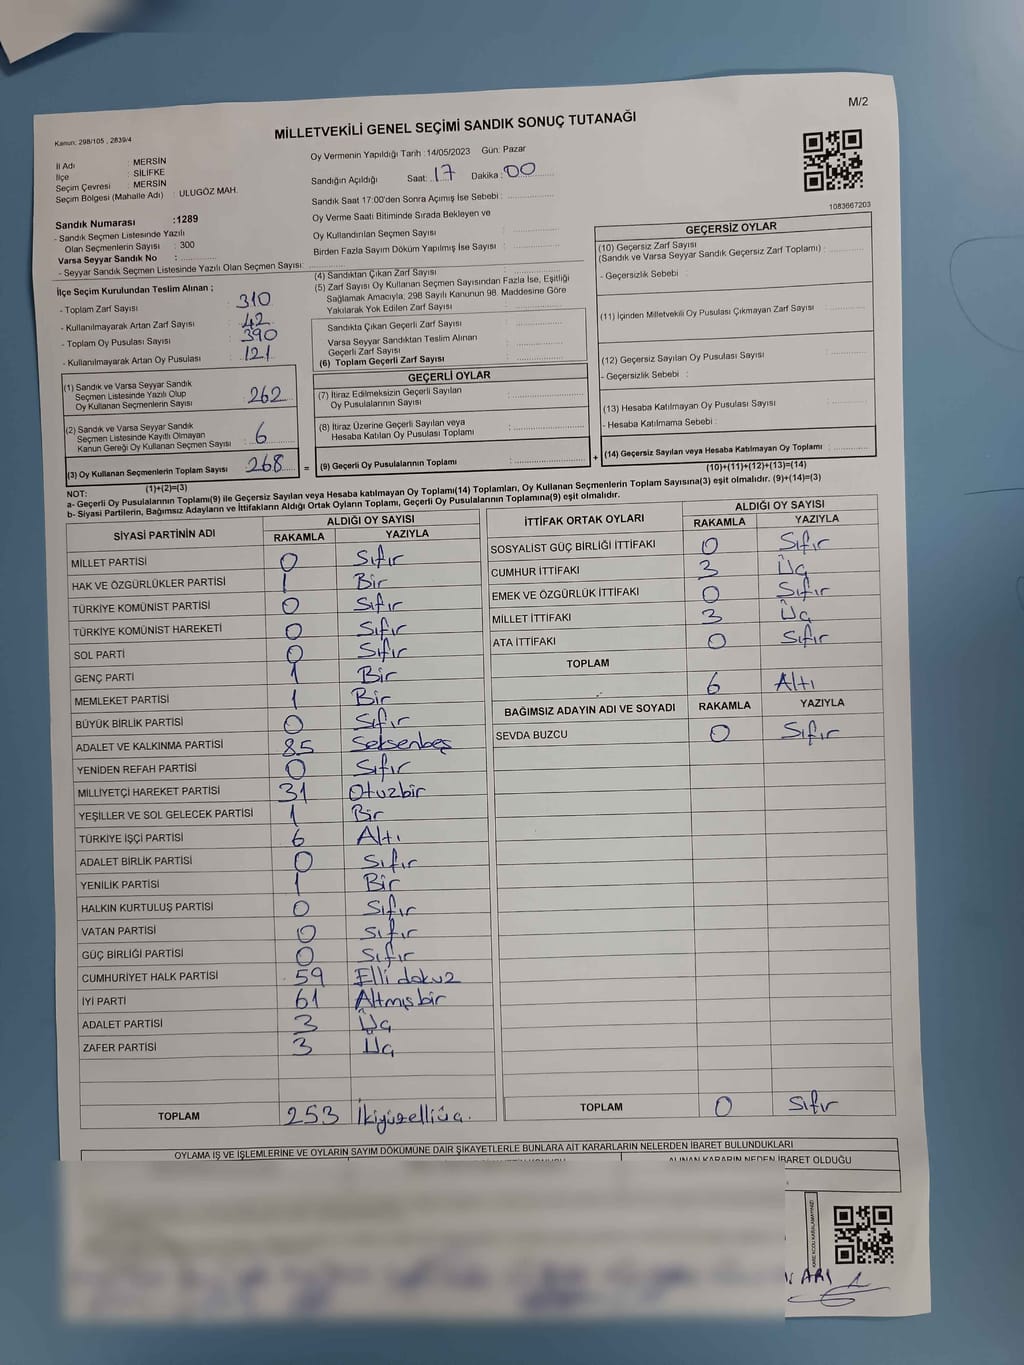 M/2
Kanun: 298/105 , 2839/4
MİLLETVEKİLİ GENEL SEÇİMİ SANDIK SONUÇ TUTANAĞI
İl Adı : MERSİN
İlçe : SİLİFKE
Seçim Çevresi : MERSİN
Seçim Bölgesi (Mahalle Adı) : ULUGÖZ MAH.
Oy Vermenin Yapıldığı Tarih : 14/05/2023 Gün: Pazar
Sandığın Açıldığı Saat: 17 Dakika: 00
Sandık Saat 17:00'den Sonra Açımış İse Sebebi :
Oy Verme Saati Bitiminde Sırada Bekleyen ve
Oy Kullandırılan Seçmen Sayısı :
Birden Fazla Sayım Döküm Yapılmış İse Sayısı :
1083667203
Sandık Numarası :1289
- Sandık Seçmen Listesinde Yazılı
Olan Seçmenlerin Sayısı : 300
Varsa Seyyar Sandık No :
- Seyyar Sandık Seçmen Listesinde Yazılı Olan Seçmen Sayısı:
İlçe Seçim Kurulundan Teslim Alınan ;
- Toplam Zarf Sayısı : 310
- Kullanılmayarak Artan Zarf Sayısı : 42
- Toplam Oy Pusulası Sayısı : 390
- Kullanılmayarak Artan Oy Pusulası : 121
(1) Sandık ve Varsa Seyyar Sandık
Seçmen Listesinde Yazılı Olup
Oy Kullanan Seçmenlerin Sayısı : 262
(2) Sandık ve Varsa Seyyar Sandık
Seçmen Listesinde Kayıtlı Olmayan
Kanun Gereği Oy Kullanan Seçmen Sayısı : 6
(3) Oy Kullanan Seçmenlerin Toplam Sayısı : 268
(1)+(2)=(3)
(4) Sandıktan Çıkan Zarf Sayısı :
(5) Zarf Sayısı Oy Kullanan Seçmen Sayısından Fazla İse, Eşitliği
Sağlamak Amacıyla, 298 Sayılı Kanunun 98. Maddesine Göre
Yakılarak Yok Edilen Zarf Sayısı :
Sandıkta Çıkan Geçerli Zarf Sayısı :
Varsa Seyyar Sandıktan Teslim Alınan
Geçerli Zarf Sayısı :
(6) Toplam Geçerli Zarf Sayısı :
GEÇERLİ OYLAR
(7) İtiraz Edilmeksizin Geçerli Sayılan
Oy Pusulalarının Sayısı :
(8) İtiraz Üzerine Geçerli Sayılan veya
Hesaba Katılan Oy Pusulası Toplamı :
= (9) Geçerli Oy Pusulalarının Toplamı :
GEÇERSİZ OYLAR
(10) Geçersiz Zarf Sayısı
(Sandık ve Varsa Seyyar Sandık Geçersiz Zarf Toplamı) :
- Geçersizlik Sebebi :
(11) İçinden Milletvekili Oy Pusulası Çıkmayan Zarf Sayısı :
(12) Geçersiz Sayılan Oy Pusulası Sayısı :
- Geçersizlik Sebebi :
(13) Hesaba Katılmayan Oy Pusulası Sayısı :
- Hesaba Katılmama Sebebi :
+ (14) Geçersiz Sayılan veya Hesaba Katılmayan Oy Toplamı :
(10)+(11)+(12)+(13)=(14)
NOT:
a- Geçerli Oy Pusulalarının Toplamı(9) ile Geçersiz Sayılan veya Hesaba katılmayan Oy Toplamı(14) Toplamları, Oy Kullanan Seçmenlerin Toplam Sayısına(3) eşit olmalıdır. (9)+(14)=(3)
b- Siyasi Partilerin, Bağımsız Adayların ve İttifakların Aldığı Ortak Oyların Toplamı, Geçerli Oy Pusulalarının Toplamına(9) eşit olmalıdır.
SİYASİ PARTİNİN ADI ALDIĞI OY SAYISI
RAKAMLA YAZIYLA
MİLLET PARTİSİ 0 Sıfır
HAK VE ÖZGÜRLÜKLER PARTİSİ 1 Bir
TÜRKİYE KOMÜNİST PARTİSİ 0 Sıfır
TÜRKİYE KOMÜNİST HAREKETİ 0 Sıfır
SOL PARTİ 0 Sıfır
GENÇ PARTİ 1 Bir
MEMLEKET PARTİSİ 1 Bir
BÜYÜK BİRLİK PARTİSİ 0 Sıfır
ADALET VE KALKINMA PARTİSİ 85 Seksenbeş
YENİDEN REFAH PARTİSİ 0 Sıfır
MİLLİYETÇİ HAREKET PARTİSİ 31 Otuzbir
YEŞİLLER VE SOL GELECEK PARTİSİ 1 Bir
TÜRKİYE İŞÇİ PARTİSİ 6 Altı
ADALET BİRLİK PARTİSİ 0 Sıfır
YENİLİK PARTİSİ 1 Bir
HALKIN KURTULUŞ PARTİSİ 0 Sıfır
VATAN PARTİSİ 0 Sıfır
GÜÇ BİRLİĞİ PARTİSİ 0 Sıfır
CUMHURİYET HALK PARTİSİ 59 Elli dokuz
İYİ PARTİ 61 Altmışbir
ADALET PARTİSİ 3 Üç
ZAFER PARTİSİ 3 Üç
TOPLAM 253 İkiyüzelliüç.
İTTİFAK ORTAK OYLARI ALDIĞI OY SAYISI
RAKAMLA YAZIYLA
SOSYALİST GÜÇ BİRLİĞİ İTTİFAKI 0 Sıfır
CUMHUR İTTİFAKI 3 Üç
EMEK VE ÖZGÜRLÜK İTTİFAKI 0 Sıfır
MİLLET İTTİFAKI 3 Üç
ATA İTTİFAKI 0 Sıfır
TOPLAM
6 Altı
BAĞIMSIZ ADAYIN ADI VE SOYADI RAKAMLA YAZIYLA
SEVDA BUZCU 0 Sıfır
TOPLAM 0 Sıfır
OYLAMA İŞ VE İŞLEMLERİNE VE OYLARIN SAYIM DÖKÜMÜNE DAİR ŞİKAYETLERLE BUNLARA AİT KARARLARIN NELERDEN İBARET BULUNDUKLARI
ALINAN KARARIN NEDEN İBARET OLDUĞU